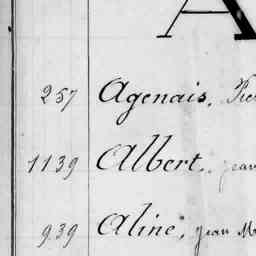 A
257 Agenais, Pie
1139 Albert, jean
939 Aline, jean M